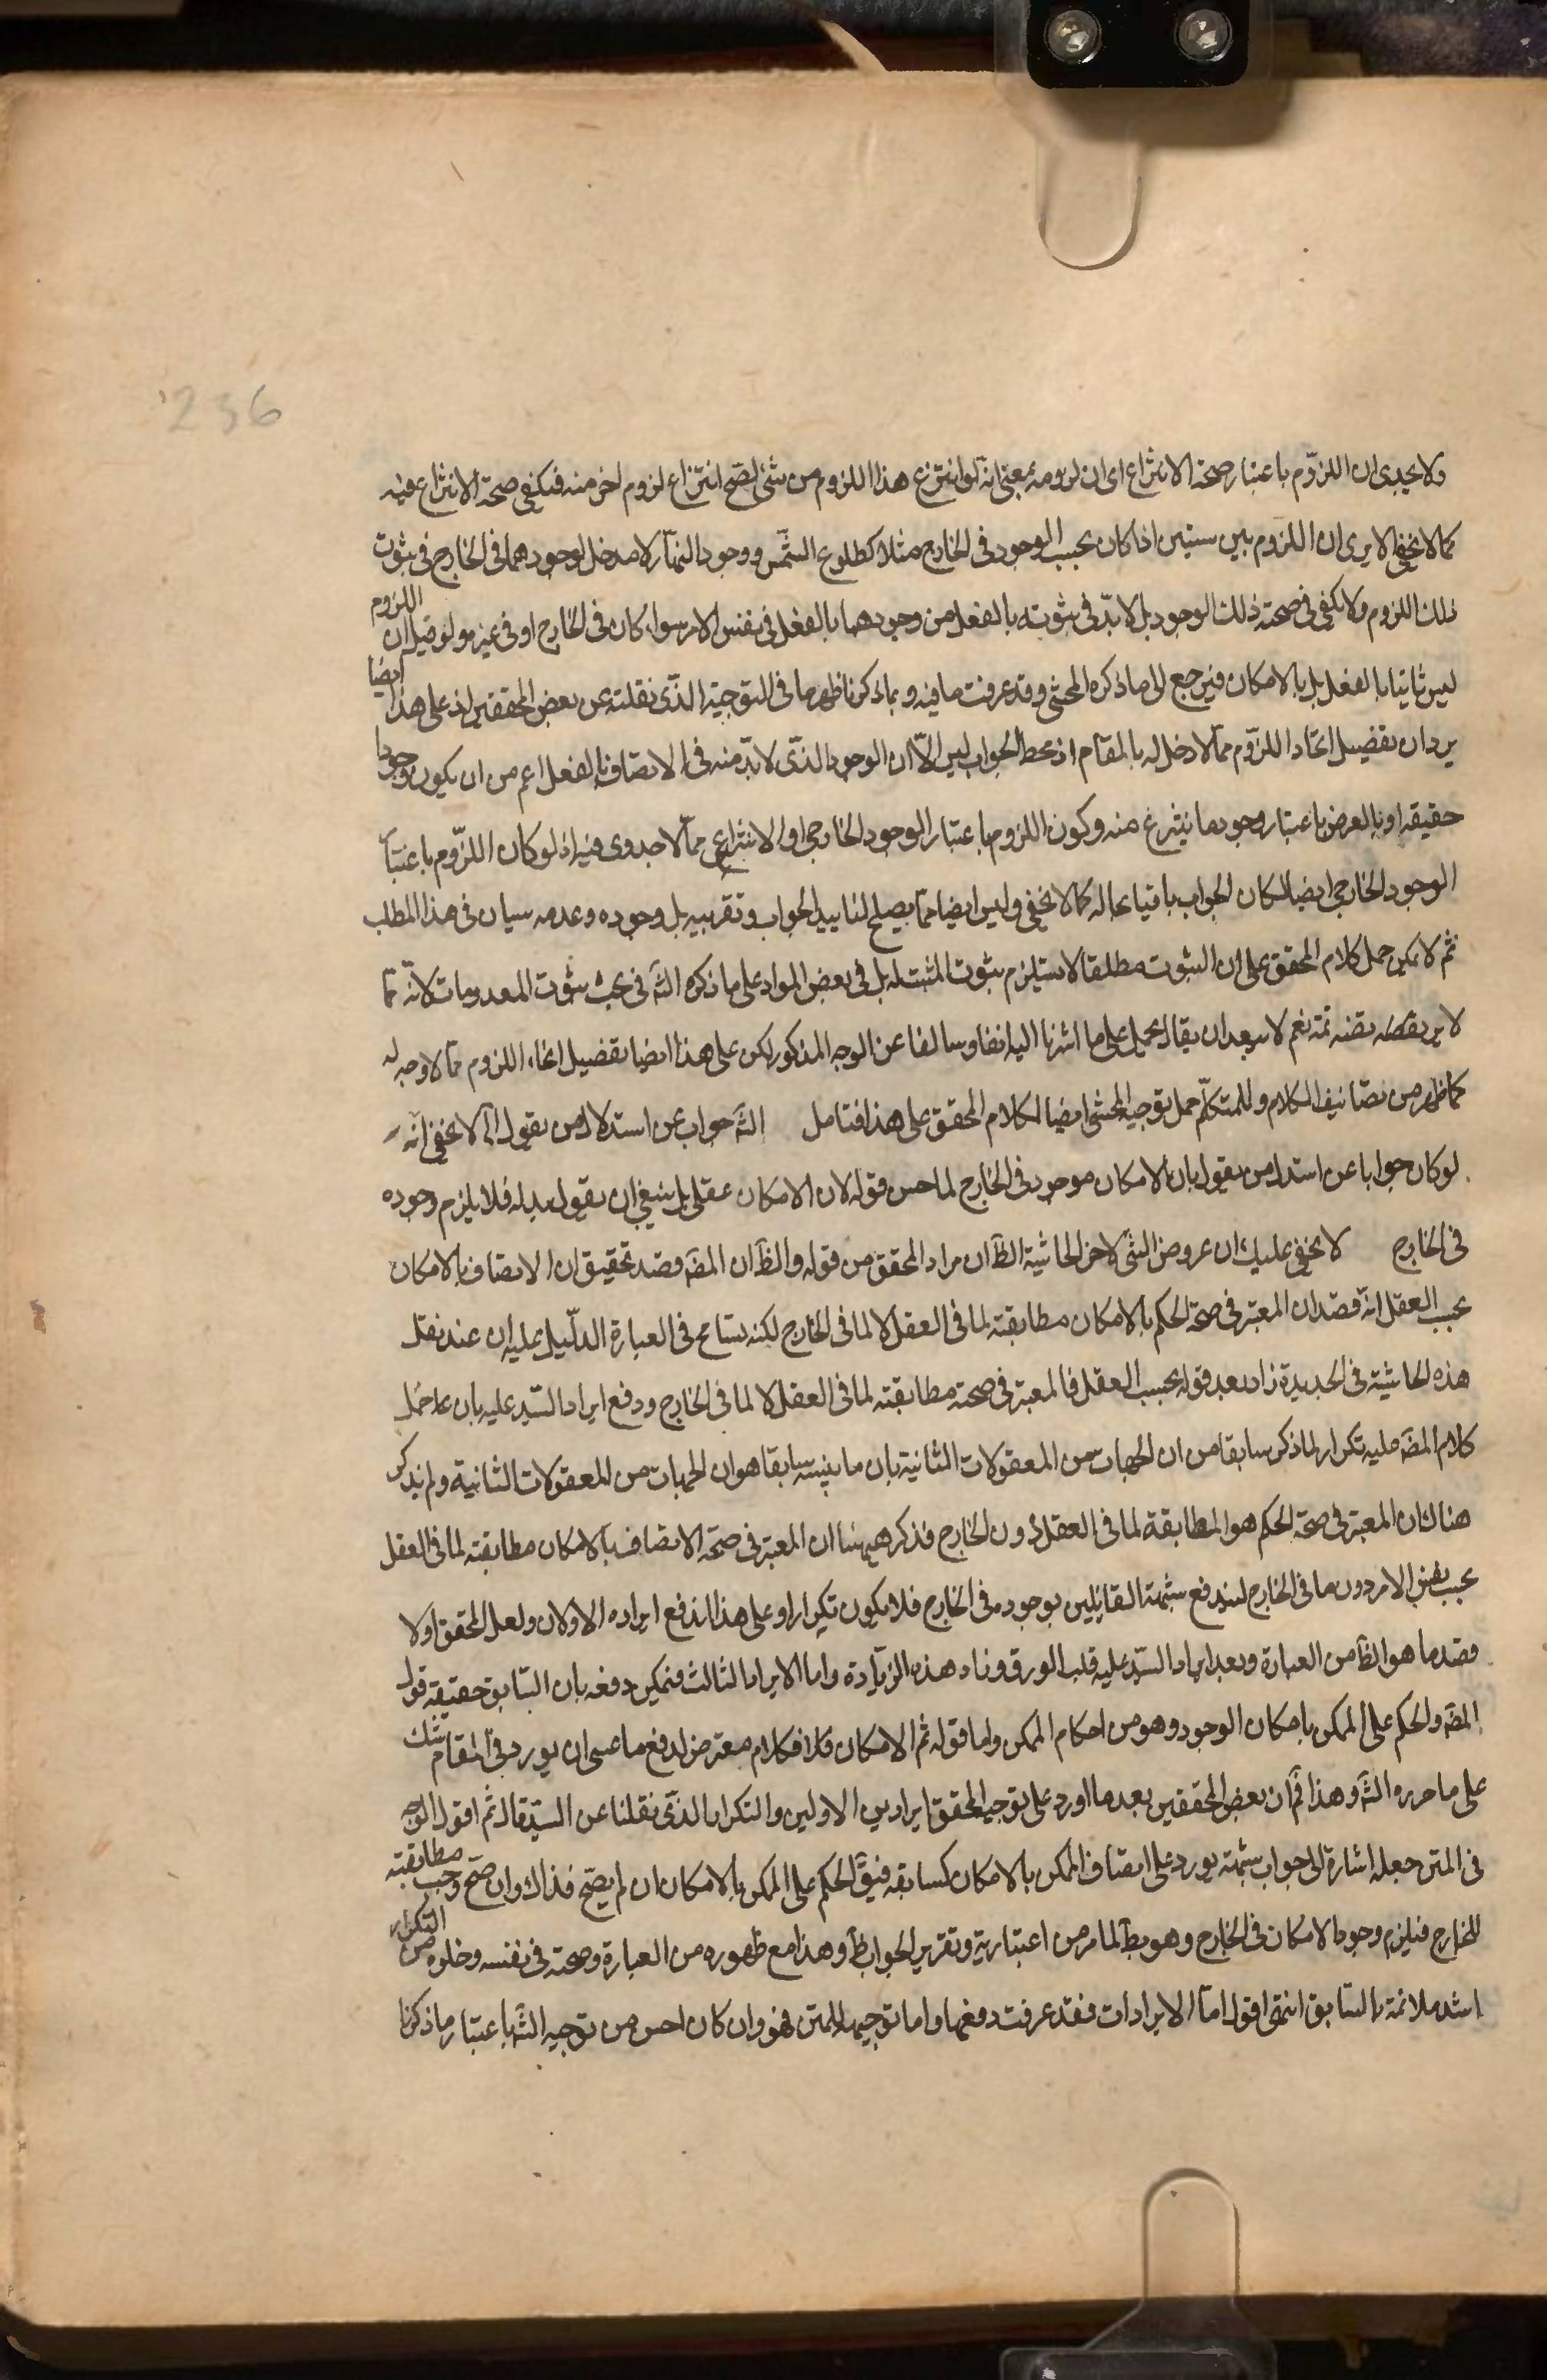 236
ولا يجدى ان اللزوم باعتبار صحة الانتزاع اى ان لزومه بمعنى انه لو انتزع هذا اللزوم من شئ لصح انتزاع لزوم اخر منه فيكفى صحة الانتزاع فيه
كما لا يخفى الا يرى ان اللزوم بين شيئين اذا كان بحسب الوجود فى الخارج مثلا كطلوع الشمس ووجود النهار لا مدخل لوجودهما فى الخارج فى ثبوت
ذلك اللزوم ولا يكفى فى صحته ذلك الوجود بل لا بد فى ثبوته بالفعل من وجودهما بالفعل فى نفس الامر سواء كان فى الخارج او فى غيره ولو قيل ان اللزوم
ليس ثابتا بالفعل بل بالامكان فيرجع الى ما ذكره المحشى وقد عرفت ما فيه وبما ذكرنا ظهر ما فى التوجيه الذى نقلته عن بعض المحققين اذ على هذا ايضا
يرد ان تفصيل انحاء اللزوم مما لا دخل له بالمقام اذ محط الجواب ليس الا ان الوجود الذى لا بد منه فى الاتصاف بالفعل اعم من ان يكون وجودا
حقيقة او بالعرض باعتبار وجود ما ينتزع منه وكون اللزوم باعتبار الوجود الخارجى او الانتزاعى مما لا جدوى فيه اذ لو كان اللزوم باعتبار
الوجود الخارجى ايضا لكان الجواب باقيا بحاله كما لا يخفى وليس ايضا مما يصلح لتاييد الجواب وتقريبه بل وجوده وعدمه سيان فى هذا المطلب
ثم لا يمكن حمل كلام المحقق على ان الثبوت مطلقا لا يستلزم ثبوت المثبت له بل فى بعض المواد على ما ذكره الش فى بحث ثبوت المعدومات لانه مما
لا يرتضيه نفسه ثمة نعم لا يبعد ان يقال يحمل على ما اشرنا اليه انفا وسالفا عن الوجه المذكور لكن على هذا ايضا تفصيل انحاء اللزوم مما لا وجه له
كما ظهر من تضاعيف الكلام وللمتكلم حمل توجيه المحشى ايضا لكلام المحقق على هذا فتامل الش جواب عن استدلال من يقول الى لا يخفى انه
لو كان جوابا عن استدلال من يقول بان الامكان موجود فى الخارج لما حسن قوله لان الامكان عقلى بل ينبغى ان يقول بدله فلا يلزم وجوده
فى الخارج لا يخفى عليك ان عروض الشئ لاخر الحاشية الظ ان مراد المحقق من قوله والظ ان المص قصد تحقيق ان الاتصاف بالامكان
بحسب العقل انه قصد ان المعتبر فى صحة الحكم بالامكان مطابقته لما فى العقل لا لما فى الخارج لكنه تسامح فى العبارة الدليل عليه ان عند نقل
هذه الحاشية فى الجديدة زاد بعد قوله بحسب العقل فالمعتبر فى صحته مطابقته لما فى العقل لا لما فى الخارج ودفع ايراد السيد عليه بان ما حمل
كلام المص عليه تكرار لما ذكر سابقا من ان الجهات من المعقولات الثانية بان ما بينه سابقا هو ان الجهات من المعقولات الثانية ولم يذكر
هناك ان المعتبر فى صحة الحكم هو المطابقة لما فى العقل دون الخارج فذكر ههنا ان المعتبر فى صحة الاتصاف بالامكان مطابقته لما فى العقل
بحسب نفس الامر دون ما فى الخارج ليندفع شبهة القائلين بوجوده فى الخارج فلا يكون تكرارا وعلى هذا اندفع ايراده الاولان ولعل المحقق اولا
قصد ما هو الظ من العبارة وبعد ايراد السيد عليه قلب الورق وزاد هذه الزيادة واما الايراد الثالث فيمكن دفعه بان السابق حقيقة قول
المص والحكم على الممكن بامكان الوجود وهو من احكام الممكن واما قوله ثم الامكان فكلام معترض لدفع ما عسى ان يورد فى المقام شك
على ما حرره الش وهذا ثم ان بعض المحققين بعد ما اورد على توجيه المحقق ايرادين الاولين والتكرار الذى نقلنا عن السيد قال ثم اقول الوجه
فى المتن جعله اشارة الى جواب شبهة يورد على اتصاف الممكن بالامكان كسابقه فيق الحكم على الممكن بالامكان ان لم يصح فذاك وان صح وجب مطابقته
للخارج فيلزم وجود الامكان فى الخارج وهو بط لما مر من اعتباريته وتقرير الجواب ظ وهذا مع ظهوره من العبارة وصحته فى نفسه وخلوه من التكرار
اشد ملائمة بالسابق انتهى اقول اما الايرادات فقد عرفت دفعها واما توجيهه للمتن فهو وان كان احسن من توجيه الش باعتبار ما ذكرنا